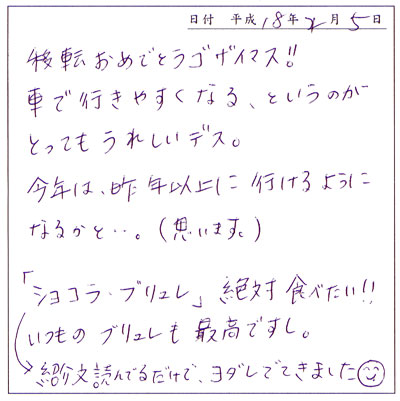 日付 平成18年2月5日
移転おめでとうゴザイマス!!
車で行きやすくなる、というのが
とってもうれしいデス。
今年は、昨年以上に行けるように
なるかと…。(思います。)
「ショコラ・ブリュレ」絶対食べたい!!
いつものブリュレも最高ですし。
紹介文読んでるだけで、ヨダレでてきました